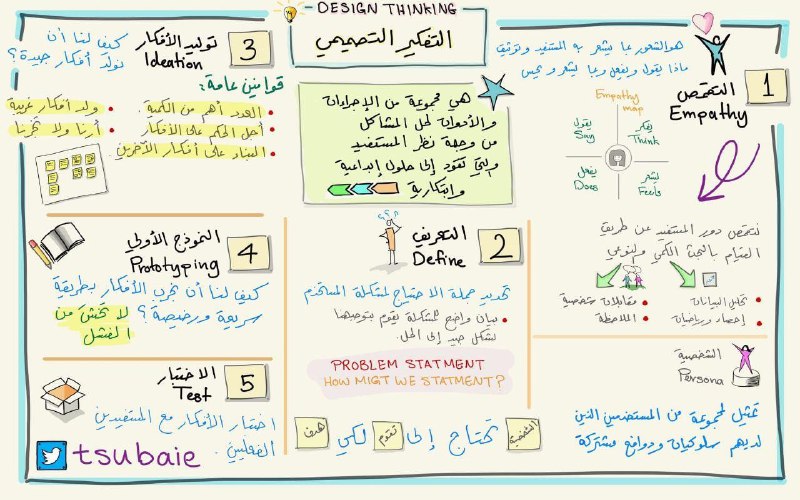 DESIGN THINKING
التفكير التصميمي
هي مجموعة من الإجراءات
والأدوات لحل المشاكل
من وجهة نظر المستفيد
والتي تقود إلى حلول إبداعية
وابتكارية
1
التقمص
Empathy
هو الشعور بما يشعر به المستفيد وتوثيق
ماذا يقول ويفعل وبما يشعر ويحس
Empathy
map
يقول
Say
يفكر
Think
يفعل
Does
يشعر
Feels
نتقمص دور المستفيد عن طريق
القيام بالبحث الكمي والنوعي
تحليل البيانات
إحصاء ورياضيات
مقابلات شخصية
الملاحظة
الشخصية
Persona
تمثيل لمجموعة من المستخدمين الذين
لديهم سلوكيات ودوافع مشتركة
2
التعريف
Define
تحديد جملة الاحتياج لمشكلة المستخدم
بيان واضح للمشكلة يقوم بتوجيهنا
بشكل جيد إلى الحل.
PROBLEM STATMENT
HOW MIGT WE STATMENT?
الشخصية تحتاج إلى تقوم لكي هدف
3
توليد الأفكار
Ideation
كيف لنا أن
نولد أفكار جيدة؟
قوانين عامة:
العدد أهم من الكمية.
أجل الحكم على الأفكار
البناء على أفكار الآخرين
ولد أفكار غريبة
أرنا ولا تخبرنا
4
النموذج الأولي
Prototyping
كيف لنا أن نجرب الأفكار بطريقة
سريعة ورخيصة؟
لا تخش من
الفشل
5
الاختبار
Test
اختبار الأفكار مع المستفيدين
الفعليين.
tsubaie